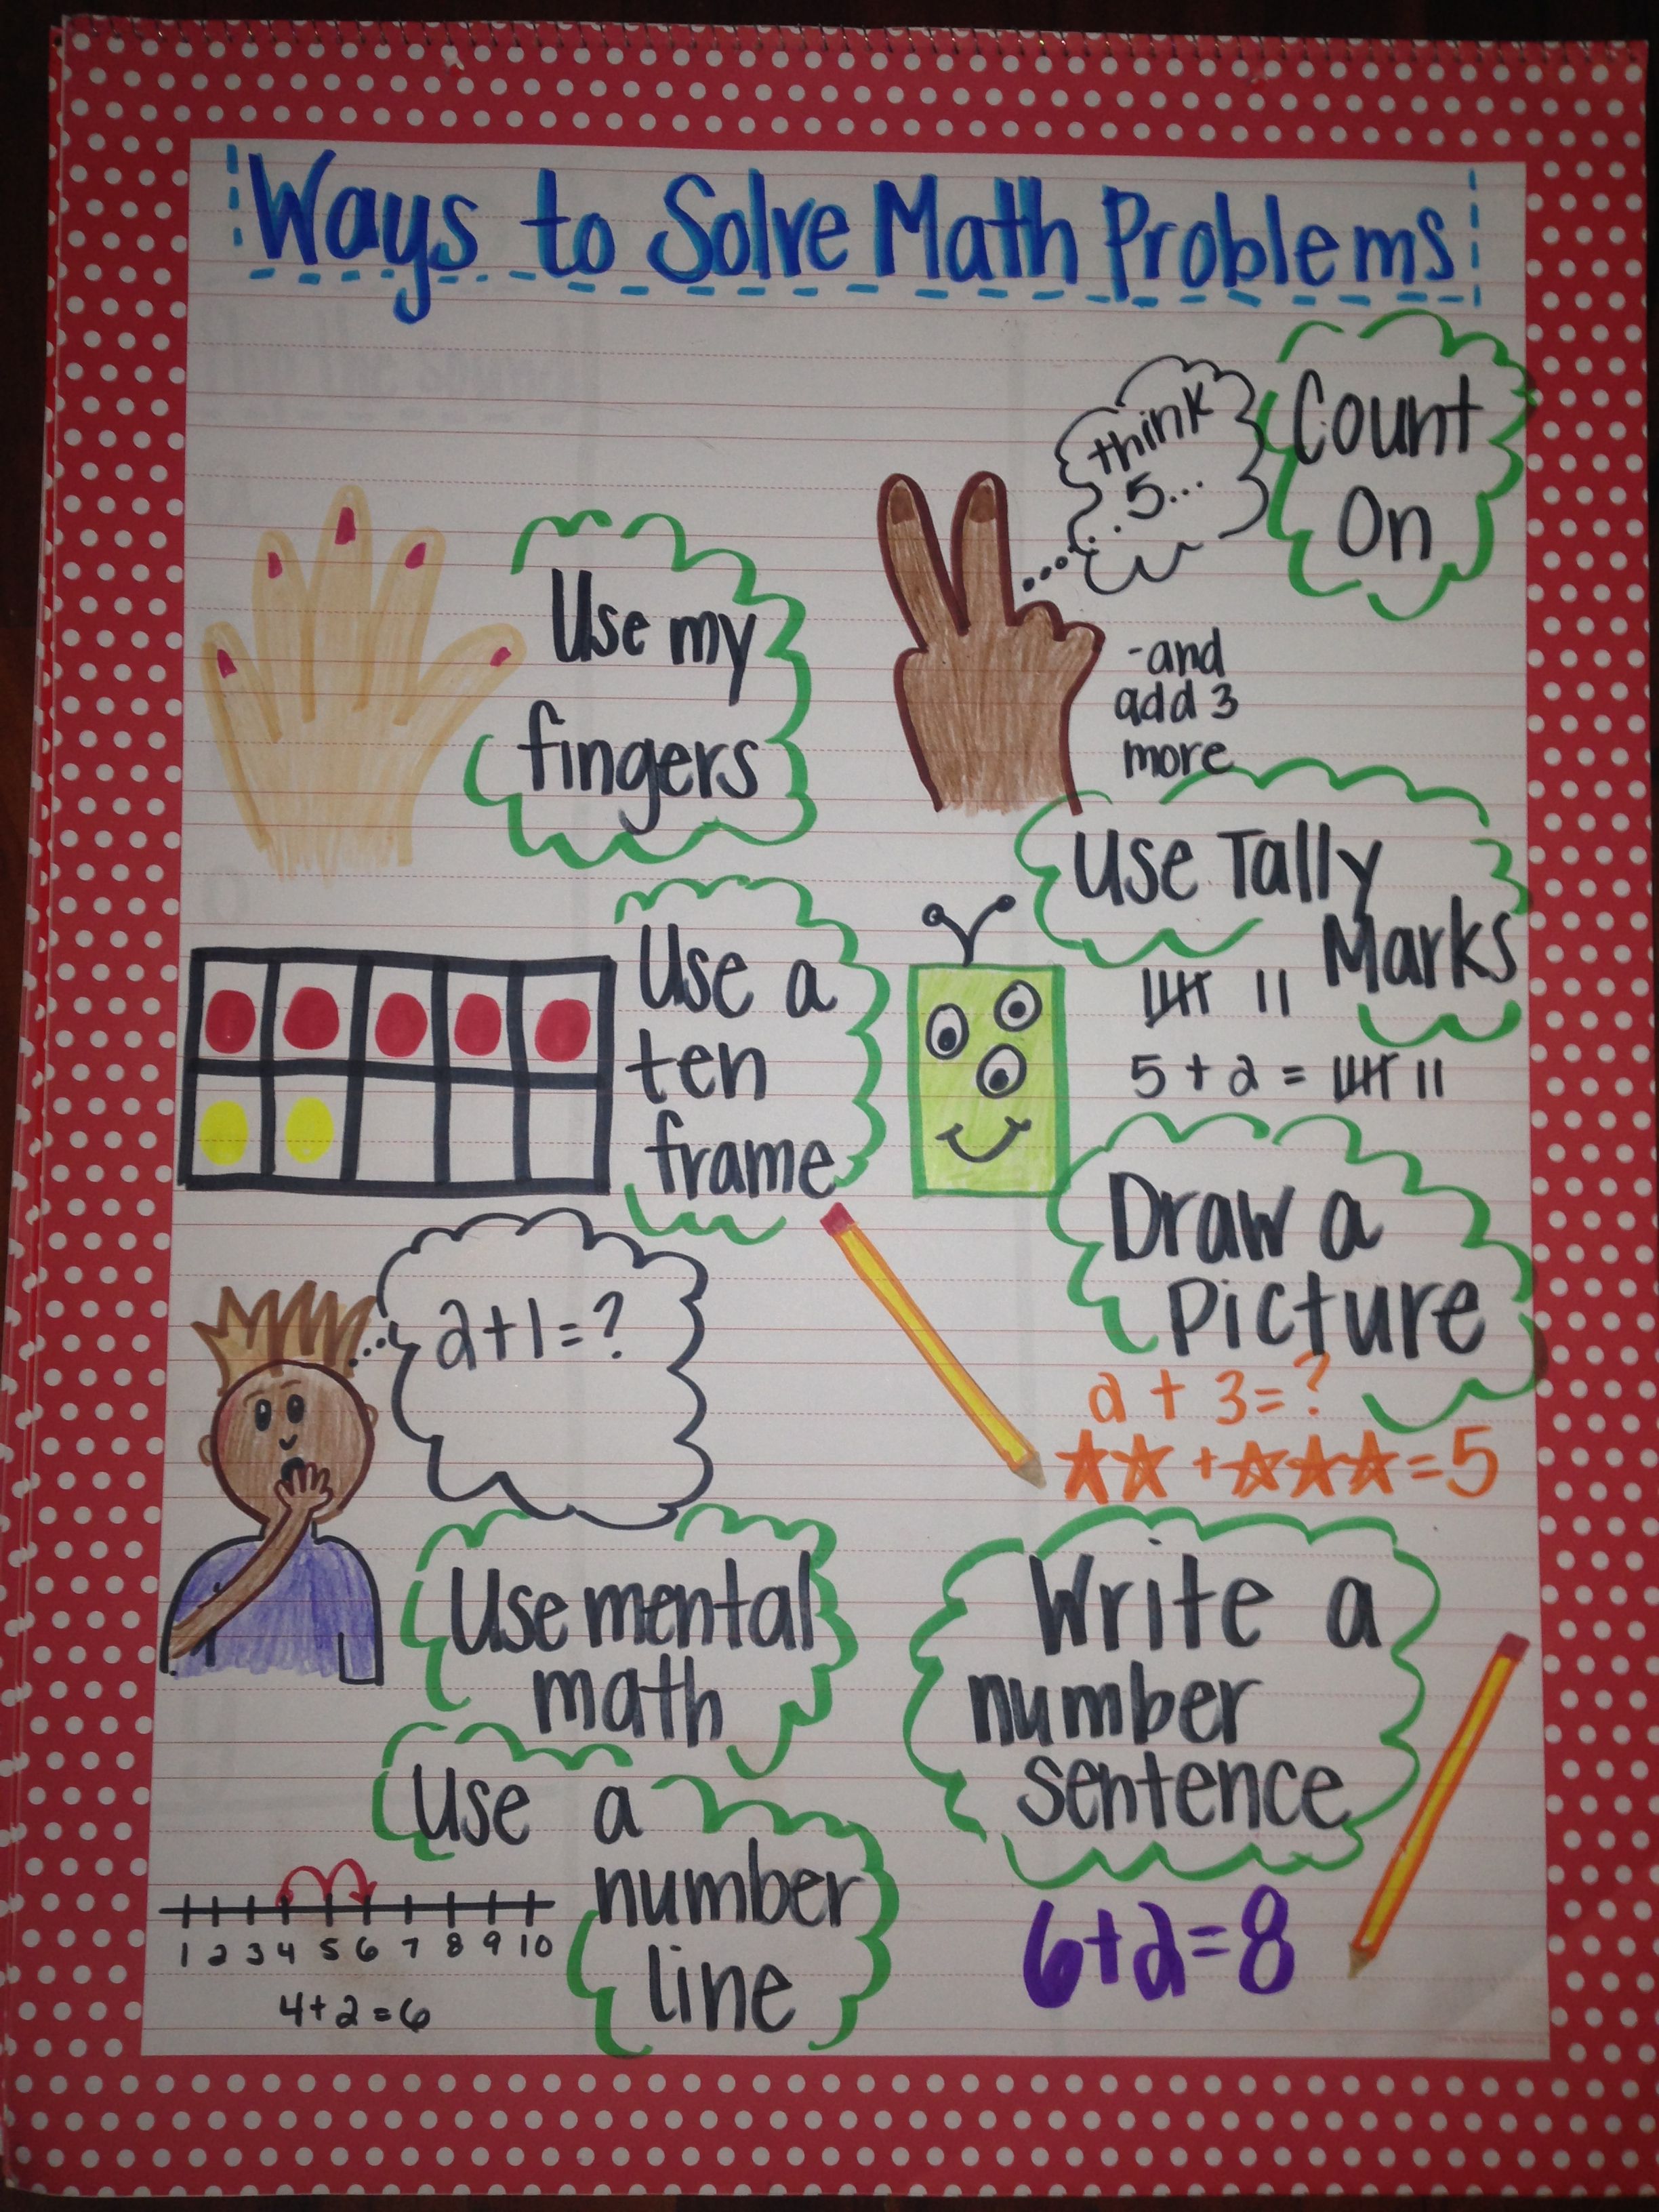 Ways to Solve Math Problems
Use my
fingers
think
5...
Count
On
-and
add 3
more
Use a
ten
frame
Use Tally
Marks
5 + 2 =
2+1=?
Use mental
math
Draw a
Picture
2 + 3=?
+ =5
Use a
number
line
1 2 3 4 5 6 7 8 9 10
4+2=6
Write a
number
sentence
6+2=8